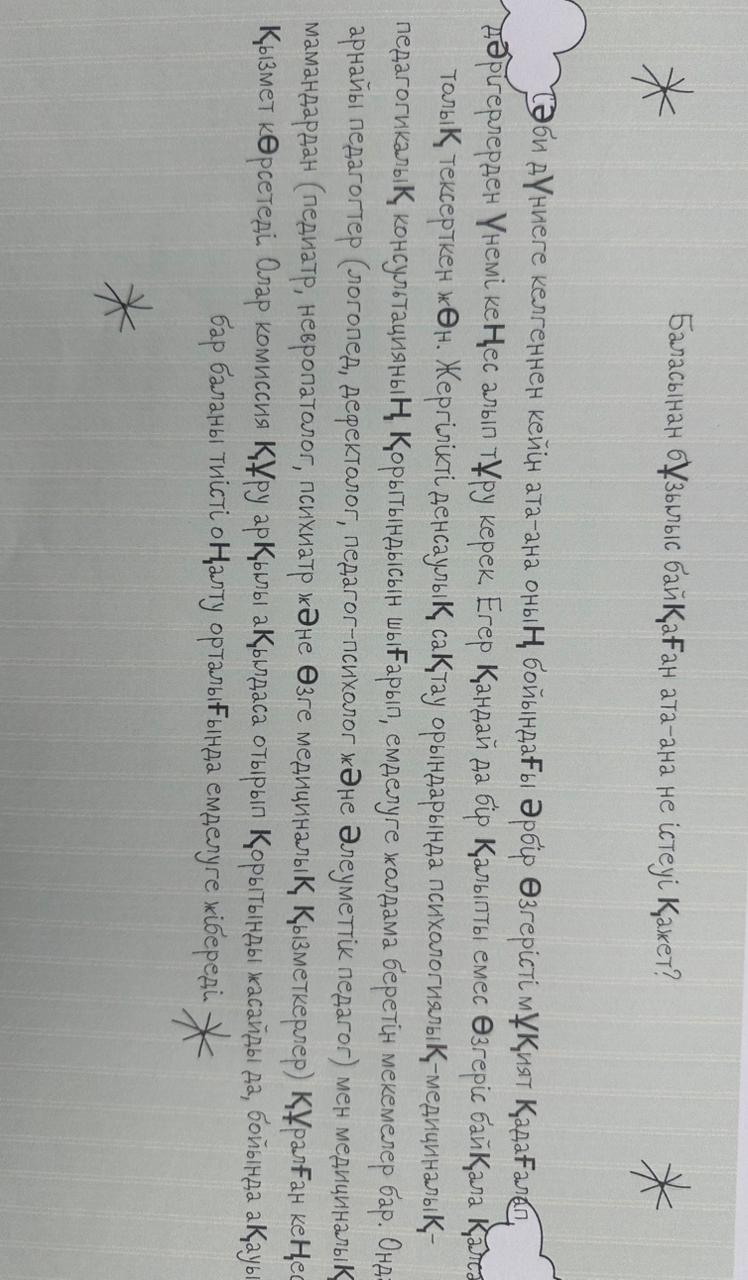 Баласынан бұзылыс байқаған ата-ана не істеуі қажет?
Сәби дүниеге келгеннен кейін ата-ана оның бойындағы әрбір өзгерісті мұқият қадағалап,
дәрігерлерден үнемі кеңес алып тұру керек. Егер қандай да бір қалыпты емес өзгеріс байқала қалса
толық тексерткен жөн. Жергілікті денсаулық сақтау орындарында психологиялық-медициналық-
педагогикалық консультацияның қорытындысын шығарып, емделуге жолдама беретін мекемелер бар. Онда
арнайы педагогтер (логопед, дефектолог, педагог-психолог және әлеуметтік педагог) мен медициналық
мамандардан (педиатр, невропатолог, психиатр және өзге медициналық қызметкерлер) құралған кеңес
қызмет көрсетеді. Олар комиссия құру арқылы ақылдаса отырып қорытынды жасайды да, бойында ақауы
бар баланы тиісті оңалту орталығында емделуге жібереді